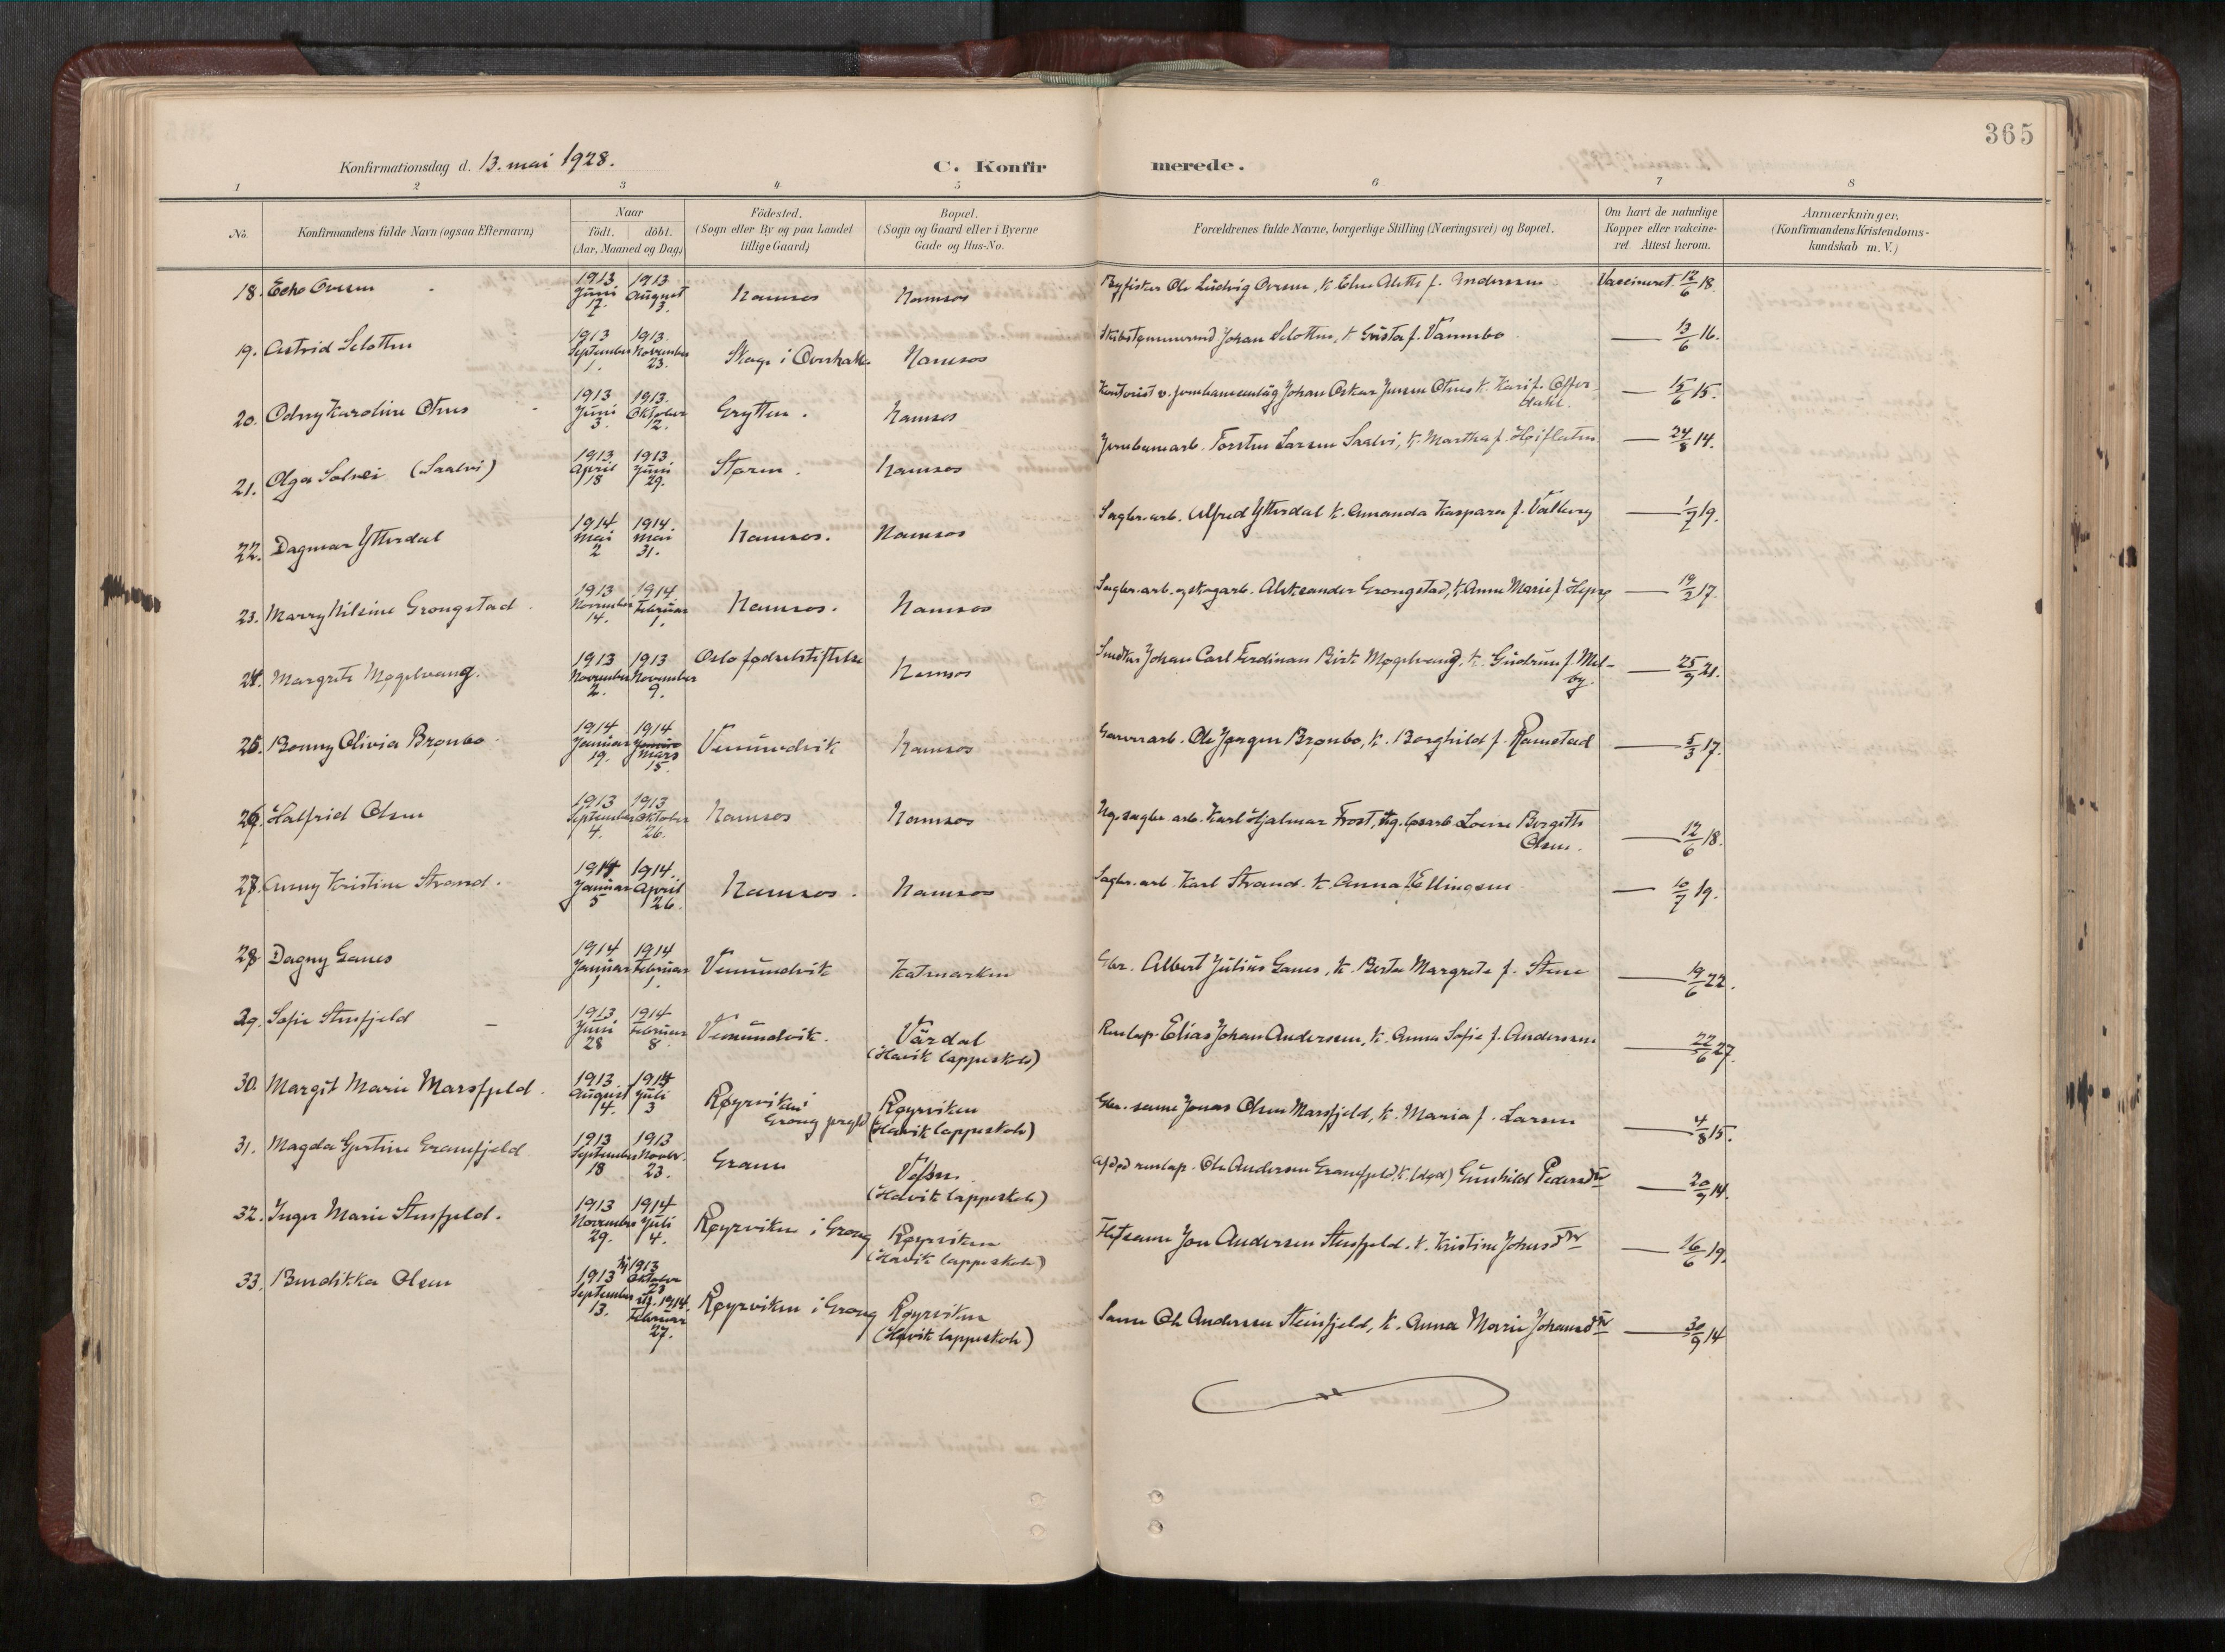 365
Konfirmationsdag d. 13. mai 1928.
C. Konfirmerede.
1 2 3 4 5 6 7 8
No.
Konfirmandens fulde Navn (ogsaa Efternavn)
Naar
födt. döbt.
(Aar, Maaned og Dag)
Födested.
(Sogn eller By og paa Landet
tillige Gaard)
Bopæl.
(Sogn og Gaard eller i Byerne
Gade og Hus-No.
Forældrenes fulde Navne, borgerlige Stilling (Næringsvei) og Bopæl.
Om havt de naturlige
Kopper eller vaccine-
ret. Attest herom.
Anmærkninger.
(Konfirmandens Kristendoms-
kundskab m. V.)
18. 1913 Juni 17. 1913 August 3. Namsos Namsos Byfisker Ole Ludvig f. Anderssen Vaccineret 12/6 18.
19. Astrid 1913 September 1. 1913. November 23. Namsos Johan f. Vannebo — 13/6 16.
20. Odny Karoline 1913 Juni 3. 1913. Oktober 12. Grytten. Namsos Kontorist v. Johan Oskar Jensen k. Kari f. Offer-
dahl. — 15/6 15.
21. Olga Solvei (Saalvi) 1913 April 18 1913 Juni 29. Støren. Namsos Jernbanearb. Torsten Larsen Saalvi, k. Martha f. Høiflaten — 24/8 14.
22. Dagmar Ytterdal 1914 Mai 2 1914. Mai 31. Namsos. Namsos Sagbr.arb. Alfred Ytterdal k. Amanda Kaspara f. Valberg — 1/7 19.
23. Marry Nilsine Grongstad 1913 November 14. 1914 Februar 1. Namsos. Namsos Sagbr.arb. og skogarb. Aleksander Grongstad, k. Anne Marie f. — 19/2 17.
24. Margrete Møgelvang. 1913 November 2. 1913 November 9. Oslo fødselsstiftelse Namsos Johan Carl Ferdinan Birk Møgelvang, k. Gudrun f. Mel-
by. — 25/9 21.
25. Bonny Olivia Brønbo 1914 Januar 19. 1914 Mars 15. Vemundvik Namsos Ole Jørgen Brønbo, k. Borghild f. Ramstad — 5/3 17.
26. Halfrid Olsen 1913 September 4. 1913 Oktober 26. Namsos Namsos Ug. sagbr. arb. Karl Hjalmar Frost, Ug. Bergitte
Olsen. — 12/6 18.
27. Anny Kristine Strand. 1914 Januar 5 1914. April 26. Namsos. Namsos Sagbr.arb. Karl Strand. k. Anna f. Ellingsen — 10/7 19.
28 Dagny Ganes 1914 Januar 1914 Februar 1. Vemundvik Kalvmarken Gbr. Albert Julius Ganes, k. Berta Margrete f. Stene — 19/6 22.
29. Sofie Stenfjeld 1913. Juni 28 1914 Februar 8 Vemundvik. Værdal
(Havik lappeskole) Renlap. Elias Johan Anderssen, k. Anna Sofie f. Anderssen — 22/6 27.
30. Margit Marie Marsfjeld. 1913. August 4. 1914 Juli 3 Røyrviken i
Grong prgjd Røyrviken
(Havik lappeskole) Gbr. same Jonas Olsen Marsfjeld, k. Maria f. Larsen — 4/8 15.
31. Magda Gjertine Granefjeld 1913 September 18 1913 Novbr. 23. Grane Vefsn.
(Havik lappeskole) Ole Andersen Granefjeld, k. (død) Gunhild Pedersdtr — 20/9 14.
32. Inger Marie Stenfjeld. 1913 November 29. 1914 Juli 4. Røyrviken i Grong Røyrviken
(Havik lappeskole) Jon Andersen Stenfjeld. k. Kristine Johnsdtr — 16/6 19.
33. Bendikka Olsen 1913 September 13. hj 1913 Oktober 23 st. 1914. Februar 27. Røyrviken i Grong Røyrviken
(Havik lappeskole) Same Ole Andersen Steinfjeld, k. Anna Marie Johansdtr — 30/9 14